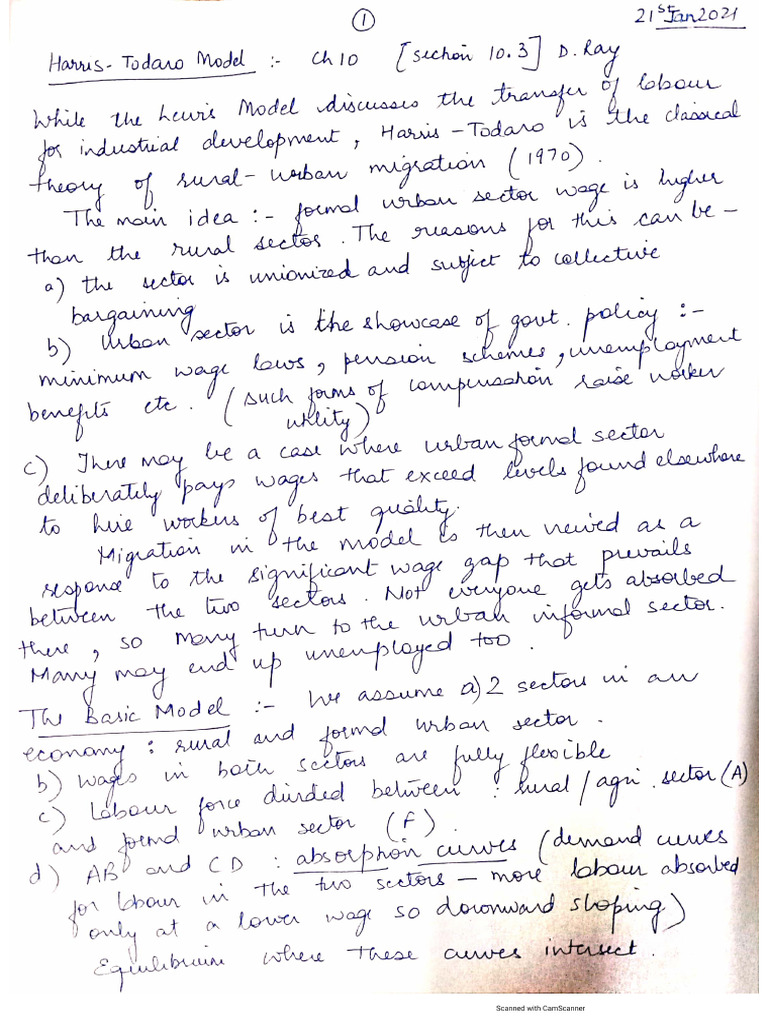 ①
21st Jan 2021
Harris-Todaro Model :- Ch 10 [section 10.3] D. Ray
While the Lewis Model discusses the transfer of labour
for industrial development, Harris-Todaro is the classical
theory of rural-urban migration (1970).
The main idea :- formal urban sector wage is higher
than the rural sector. The reasons for this can be -
a) the sector is unionized and subject to collective
bargaining
b) Urban sector is the showcase of govt. policy :-
minimum wage laws, pension schemes, unemployment
benefits etc. (such forms of compensation raise worker
utility)
c) There may be a case where urban formal sector
deliberately pays wages that exceed levels found elsewhere
to hire workers of best quality.
Migration in the model is then viewed as a
response to the significant wage gap that prevails
between the two sectors. Not everyone gets absorbed
there, so many turn to the urban informal sector.
Many may end up unemployed too.
The Basic Model :- We assume a) 2 sectors in an
economy : rural and formal urban sector.
b) Wages in both sectors are fully flexible
c) Labour force divided between : rural / agri. sector (A)
and formal urban sector (F).
d) AB and CD : absorption curves (demand curves
for labour in the two sectors – more labour absorbed
only at a lower wage so downward sloping)
Equilibrium where these curves intersect.
Scanned with CamScanner